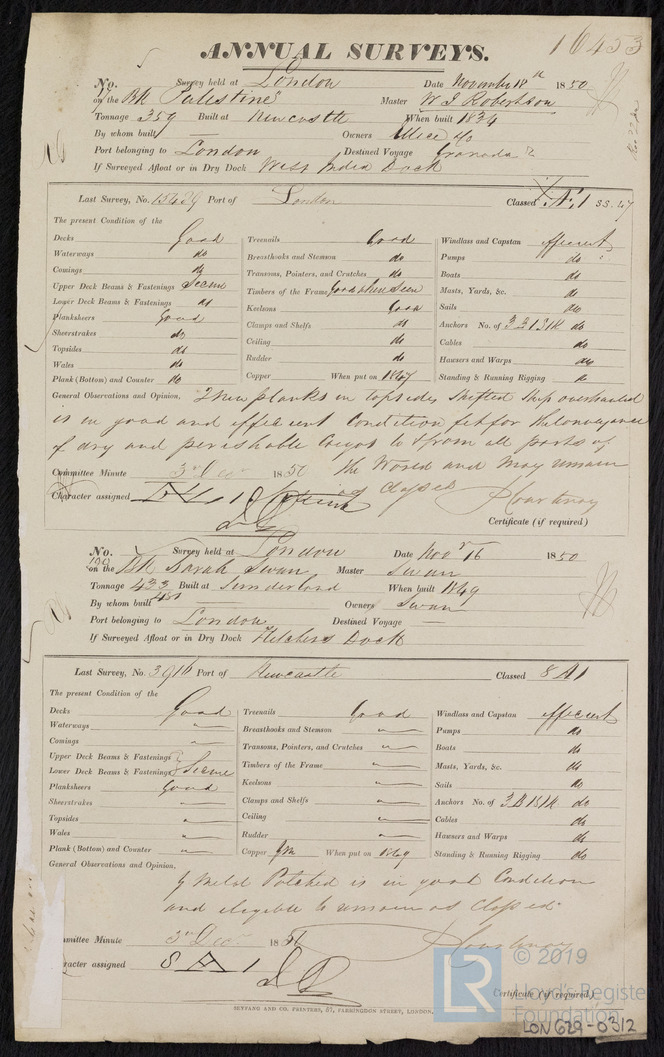 16453
ANNUAL SURVEYS.
No. Survey held at London Date November 18th 1850
on the Bk Palestine Master W I Robertson
Tonnage 359 Built at Newcastle When built 1834
By whom built Owners
Port belonging to London Destined Voyage Granada
If Surveyed Afloat or in Dry Dock West India Dock
Last Survey, No. 15439 Port of London Classed Æ 1 SS. 47
The present Condition of the
Decks Good
Waterways do
Comings do
Upper Deck Beams & Fastenings Secure
Lower Deck Beams & Fastenings do
Planksheers Good
Sheerstrakes do
Topsides do
Wales do
Plank (Bottom) and Counter do
Treenails Good
Breasthooks and Stemson do
Transoms, Pointers, and Crutches do
Timbers of the Frame Good where Seen
Keelsons Good
Clamps and Shelfs do
Ceiling do
Rudder do
Copper When put on 1847
Windlass and Capstan efficient
Pumps do
Boats do
Masts, Yards, &c. do
Sails do
Anchors No. of 3 B 1 S 1 K do
Cables do
Hawsers and Warps do
Standing & Running Rigging do
General Observations and Opinion, Three planks in topsides shifted Ship overhauled
is in good and efficient Condition fit for the Conveyance
of dry and perishable Cargo to & from all parts of
the World and may remain
as classed
Committee Minute 3rd Decr 1850
Character assigned Æ 1 Courtenay
Certificate (if required)
No. Survey held at London Date Novr 16 1850
190
on the Bk Sarah Swan Master Swan
Tonnage 433 Built at Sunderland When built 1849
481
By whom built Owners Swan
Port belonging to London Destined Voyage
If Surveyed Afloat or in Dry Dock Fletchers Dock
Last Survey, No. 3916 Port of Newcastle Classed 8 A 1
The present Condition of the
Decks Good
Waterways
Comings
Upper Deck Beams & Fastenings
Lower Deck Beams & Fastenings Secure
Planksheers Good
Sheerstrakes
Topsides
Wales
Plank (Bottom) and Counter
Treenails Good
Breasthooks and Stemson
Transoms, Pointers, and Crutches
Timbers of the Frame
Keelsons
Clamps and Shelfs
Ceiling
Rudder
Copper YM When put on 1849
Windlass and Capstan efficient
Pumps do
Boats do
Masts, Yards, &c. do
Sails do
Anchors No. of 3 B 1 S 1 K do
Cables do
Hawsers and Warps do
Standing & Running Rigging do
General Observations and Opinion,
Y Metal Patched is in good Condition
and eligible to remain as classed
mmittee Minute 3rd Decr 1850
racter assigned 8 A 1 Courtenay
Certificate (if required)
SEYFANG AND CO. PRINTERS, 57, FARRINGDON STREET, LONDON.
LR © 2019
Lloyd's Register
Foundation
LON 629-0312